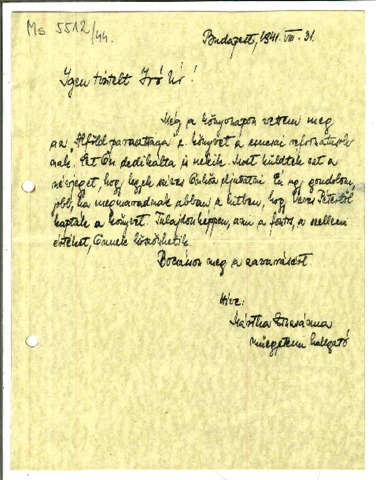 Ms 5512/44.
Budapest, 1941. VIII. 31.
Igen tisztelt Író Úr!
Még a könyvnapon vettem meg
az "Alföld parasztsága" c. könyvet a reformátusok-
nak. Ezt Ön dedikálta is nekik. Most küldték ezt a
hogy legyek szíves Önhöz eljuttatni. Én úgy gondolom,
jobb, ha megmaradnak abban a hitben, hogy Veres Pétertől
kapták a könyvet. Tulajdonképpen, ami a fontos, a szellemi
értéket, Önnek köszönhetik.
Bocsásson meg a zavarásért
Híve:
Mártha Zsuzsánna
műegyetemi hallgató